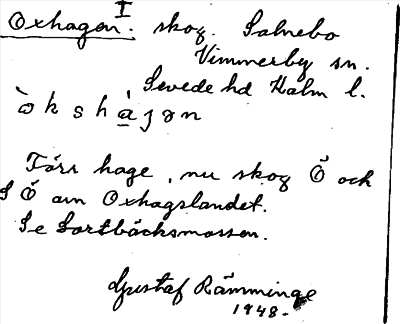 I
Oxhagen. skog. Salnebo
Vimmerby sn.
Sevede hd Kalm l.
òkshàgən
Förr hage, nu skog Ö och
S Ö om Oxhagslandet.
Se Sortbäcksmossen.
Gustaf Rämminge
1948.